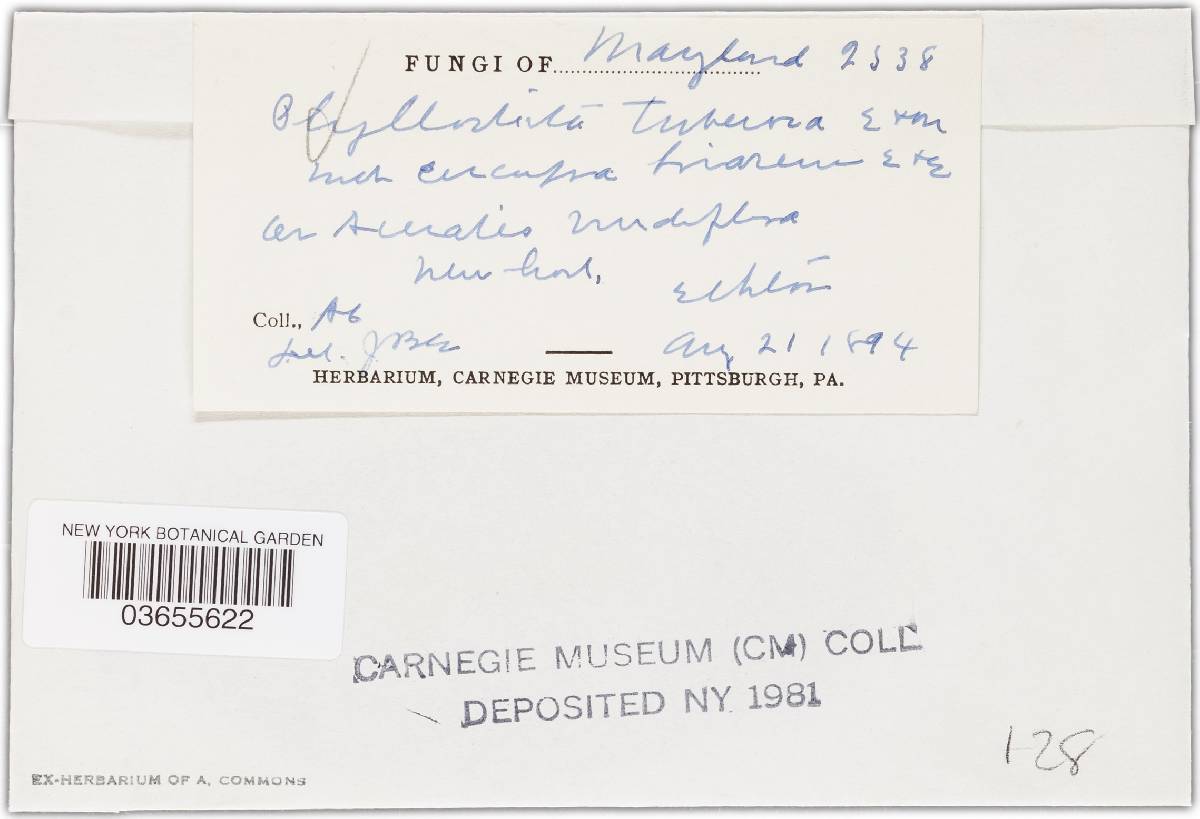 FUNGI OF Maryland 2538
Phyllosticta tuberosa E & M
with Cercospora E & E
on Asclepias
New York, Elkton
Coll., A C
det. J B E Aug 21 1894
HERBARIUM, CARNEGIE MUSEUM, PITTSBURGH, PA.
NEW YORK BOTANICAL GARDEN
03655622
CARNEGIE MUSEUM (CM) COLL
DEPOSITED NY 1981
1-28
EX-HERBARIUM OF A. COMMONS